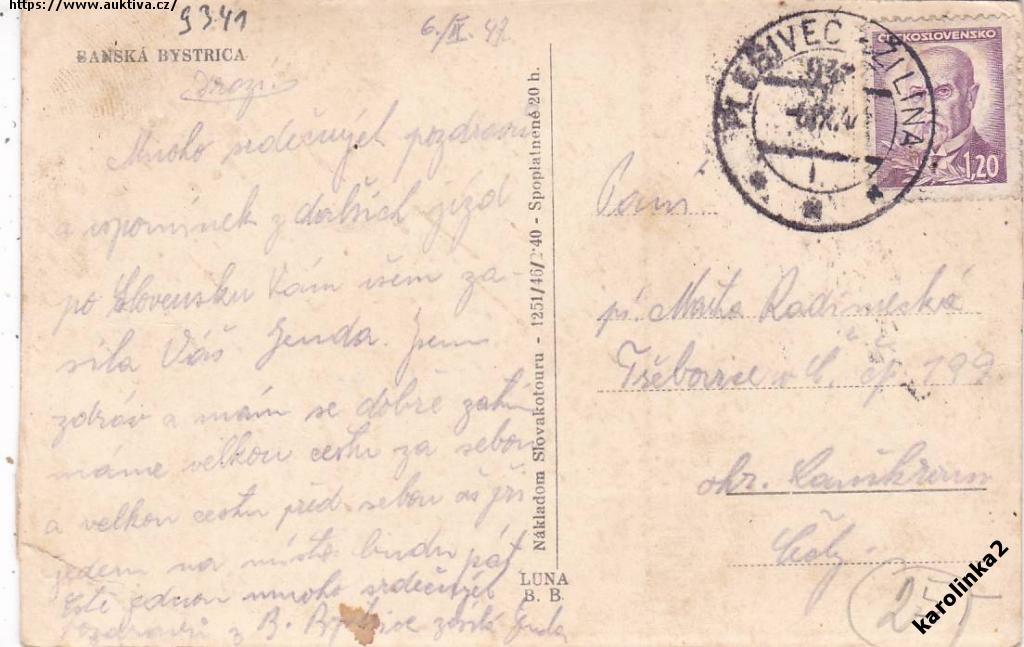 https://www.auktiva.cz/
9341
6./IX. 47
BANSKÁ BYSTRICA
Drazí.
Mnoho srdečných pozdravů
a vzpomínek z dalších jízd
po Slovensku Vám všem za-
sílá Váš Jenda. Jsem
zdráv a mám se dobře zatím
máme velkou cestu za sebou
a velkou cestu před sebou až při
jedem na místo budu psát
Ještě jednou mnoho srdečných
Pozdravů z B. Bystrice zasílá Jenda
Nákladom Slovakotouru - 1251/46/2'40 - Spoplatnené 20 h.
LUNA
B. B.
PLEŠIVEC - ŽILINA
ČESKOSLOVENSKO
1,20
Paní
Marta Radiměská
Třebovice v Č. čp. 197
okr. Lanškroun
Čechy
25
karolinka2